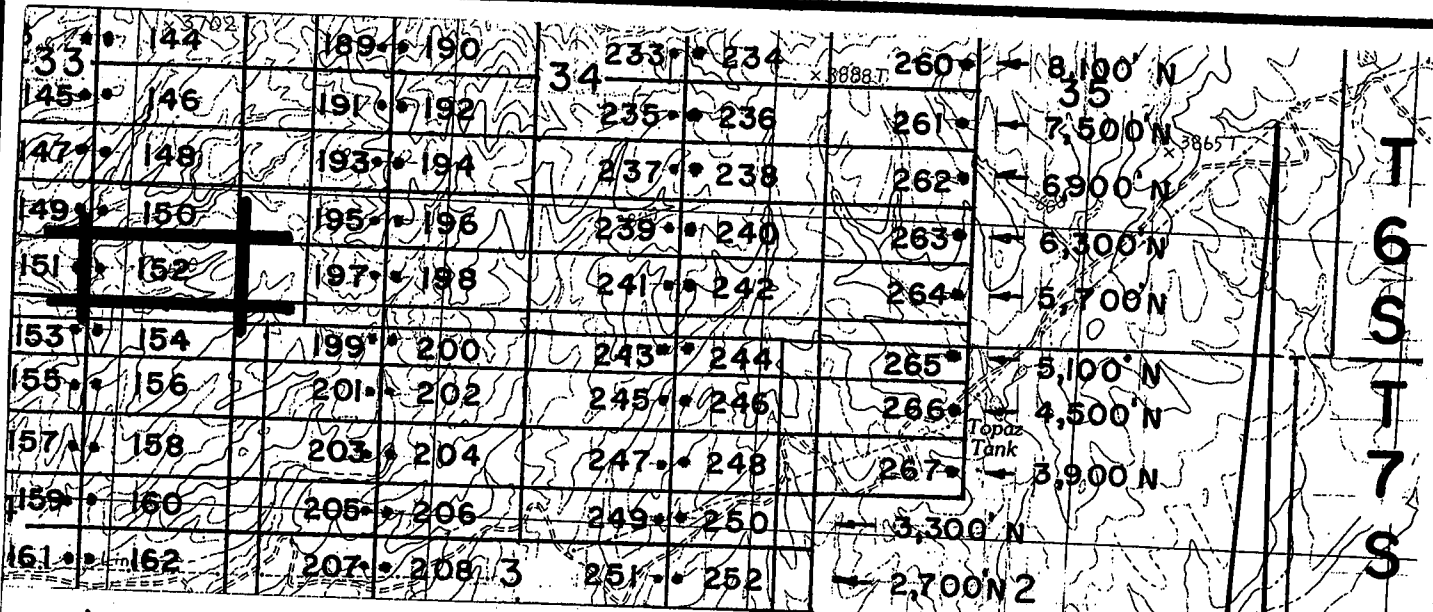 × 3702
33 144 189 190 34 233 234 × 3888T 260 8,100' N
35
145 146 191 192 235 236 261 7,500' N
× 3865T
147 148 193 194 237 238 262 6,900' N
T
149 150 195 196 239 240 263 6,300' N
6
151 152 197 198 241 242 264 5,700' N
S
153 154 199 200 243 244 265 5,100' N
T
155 156 201 202 245 246 266 4,500' N
Topaz
Tank
157 158 203 204 247 248 267 3,900' N
7
159 160 205 206 249 250 3,300' N
S
161 162 207 208 3 251 252 2,700' N 2